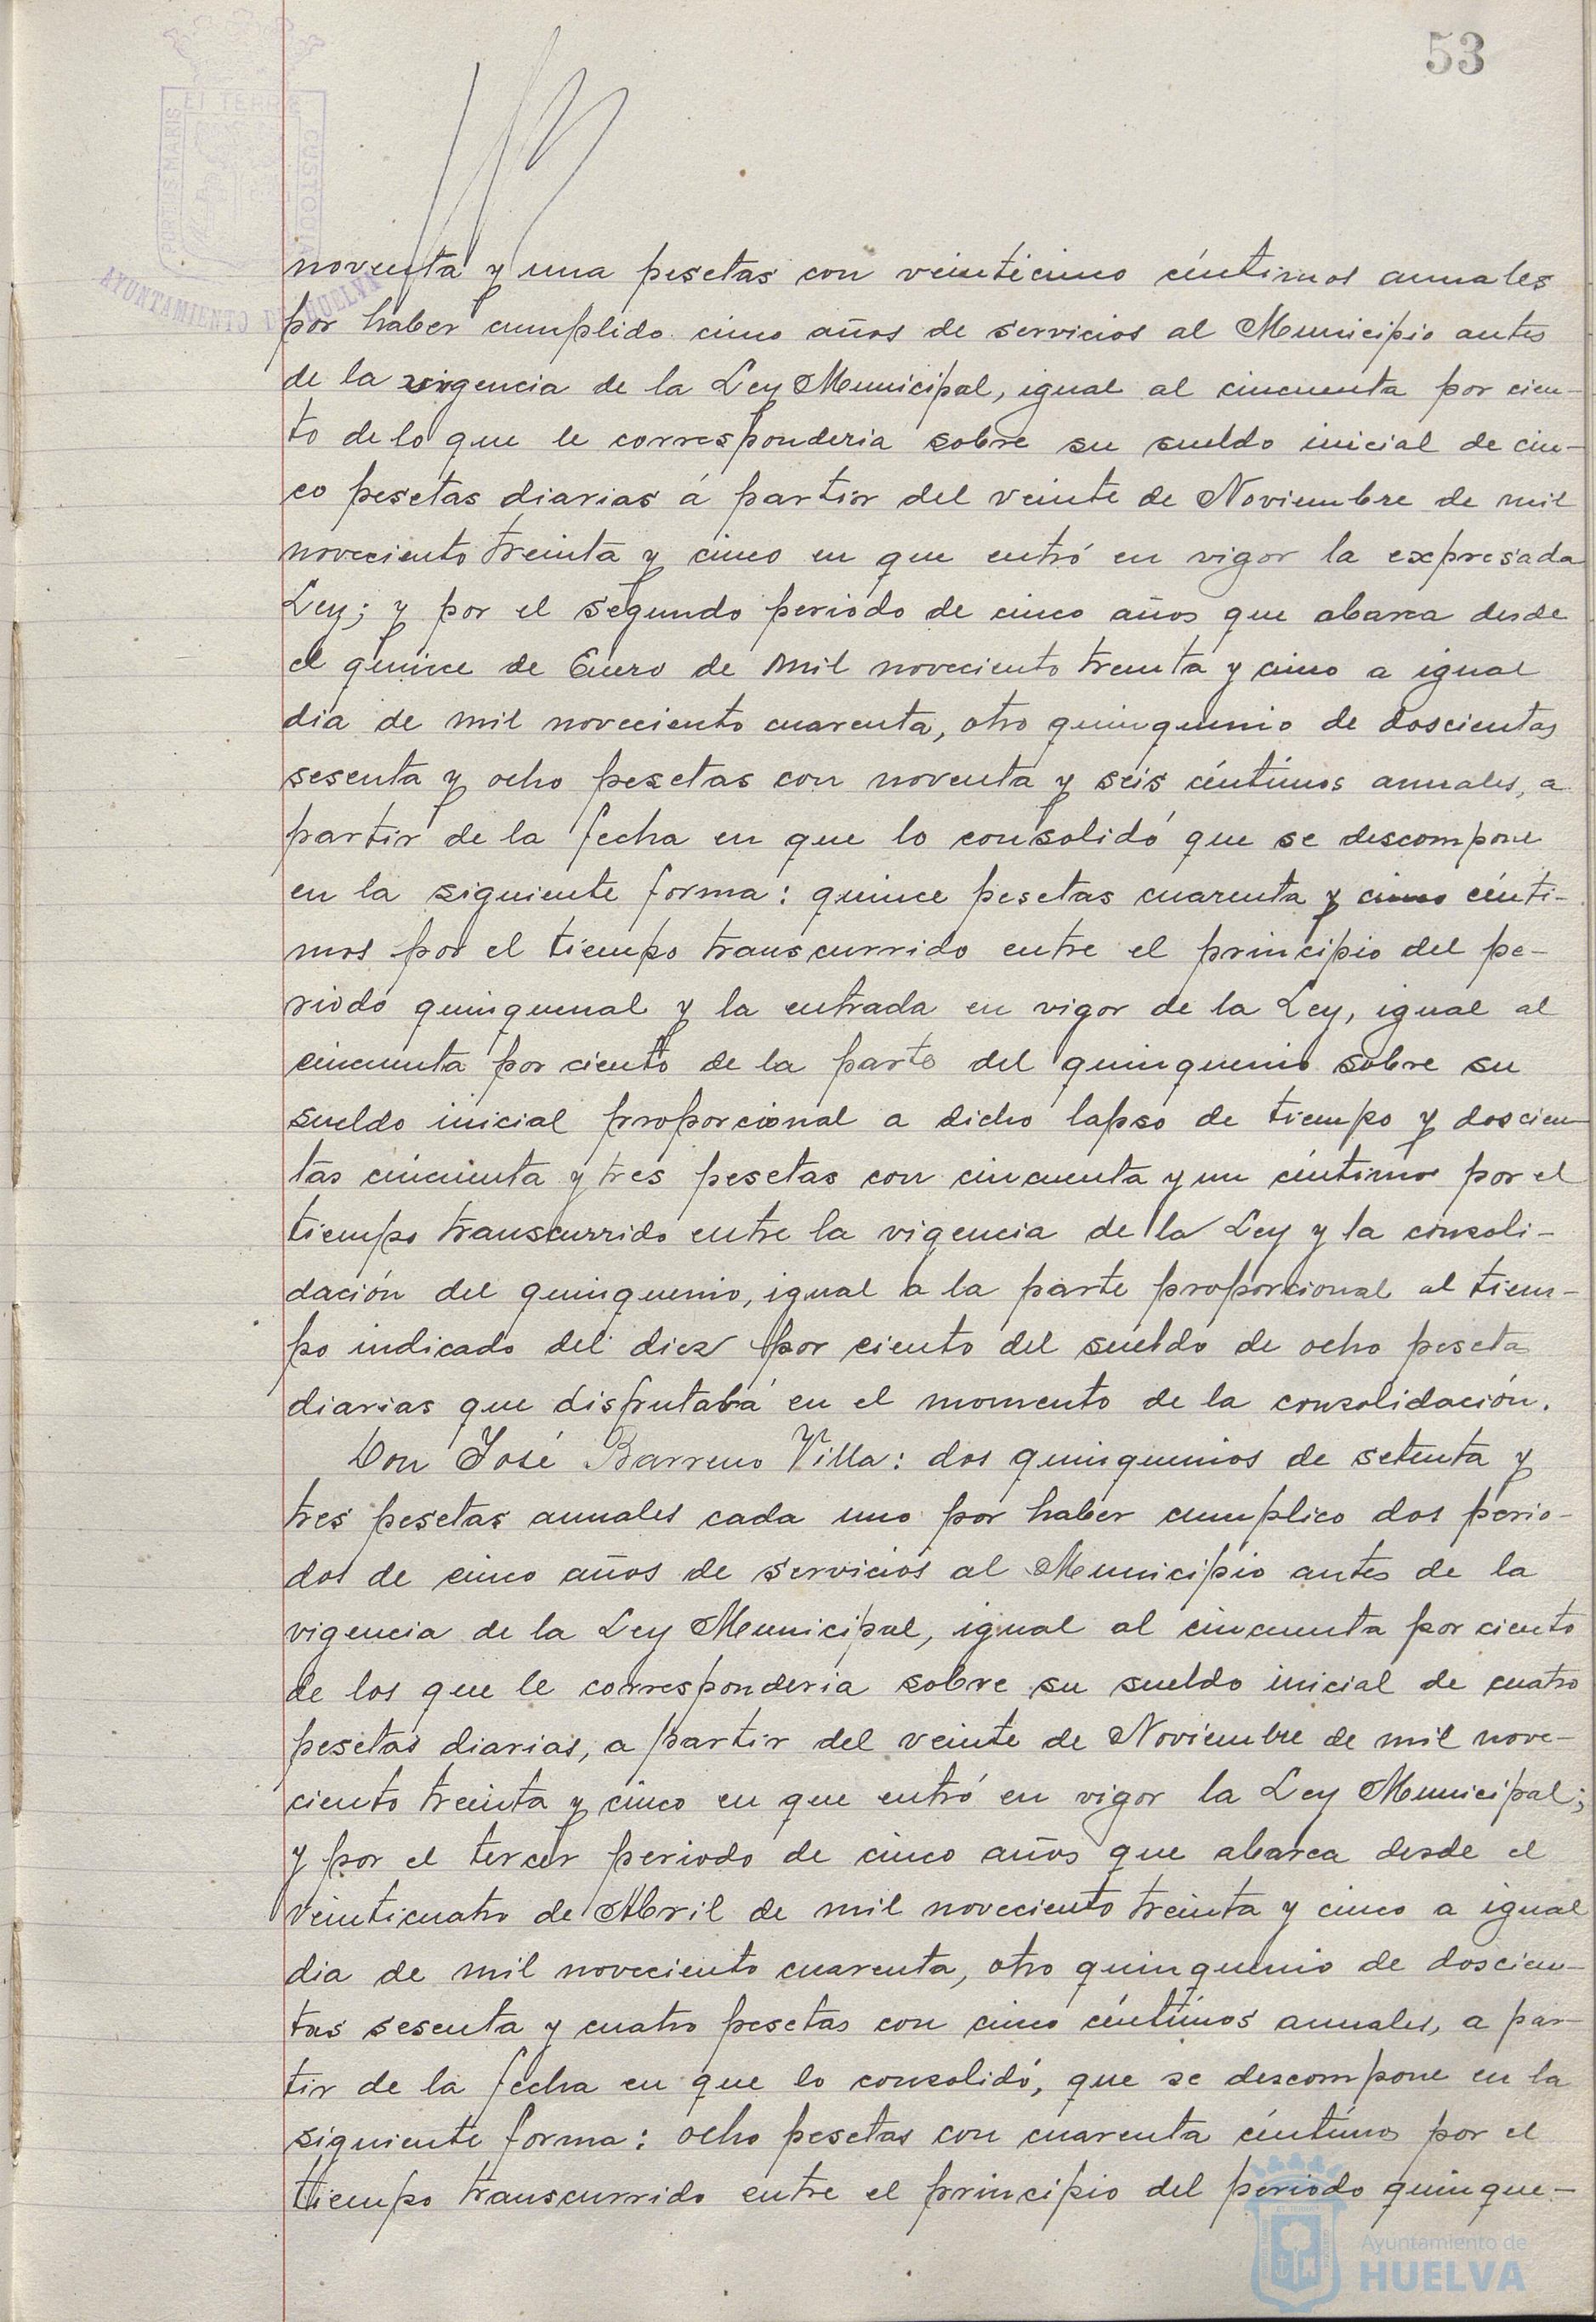 53
ET TERRE
PORTUS MARIS
CUSTODIA
AYUNTAMIENTO DE HUELVA
noventa y una pesetas con veinticinco céntimos anuales
por haber cumplido cinco años de servicios al Municipio antes
de la vigencia de la Ley Municipal, igual al cincuenta por cien-
to de lo que le corresponderia sobre su sueldo inicial de cin-
co pesetas diarias á partir del veinte de Noviembre de mil
noveciento treinta y cinco en que entró en vigor la expresada
Ley; y por el segundo periodo de cinco años que abarca desde
el quince de Enero de mil noveciento treinta y cinco a igual
dia de mil noveciento cuarenta, otro quinquenio de doscientas
sesenta y ocho pesetas con noventa y seis céntimos anuales, a
partir de la fecha en que lo consolidó que se descompone
en la siguiente forma: quince pesetas cuarenta y cinco cénti-
mos por el tiempo transcurrido entre el principio del pe-
riodo quinquenal y la entrada en vigor de la Ley, igual al
cincuenta por ciento de la parte del quinquenio sobre su
sueldo inicial proporcional a dicho lapso de tiempo y doscien
tas cincuenta y tres pesetas con cincuenta y un céntimos por el
tiempo transcurrido entre la vigencia de la Ley y la consoli-
dación del quinquenio, igual a la parte proporcional al tiem-
po indicado del diez por ciento del sueldo de ocho pesetas
diarias que disfrutaba en el momento de la consolidación.
Don José Barreno Villa: dos quinquenios de setenta y
tres pesetas anuales cada uno por haber cumplico dos perio-
dos de cinco años de servicios al Municipio antes de la
vigencia de la Ley Municipal, igual al cincuenta por ciento
de los que le corresponderia sobre su sueldo inicial de cuatro
pesetas diarias, a partir del veinte de Noviembre de mil nove-
ciento treinta y cinco en que entró en vigor la Ley Municipal;
y por el tercer periodo de cinco años que abarca desde el
veinticuatro de Abril de mil noveciento treinta y cinco a igual
dia de mil noveciento cuarenta, otro quinquenio de doscien-
tas sesenta y cuatro pesetas con cinco céntimos anuales, a par-
tir de la fecha en que lo consolidó, que se descompone en la
siguiente forma: ocho pesetas con cuarenta céntimos por el
tiempo transcurrido entre el principio del periodo quinque-
Ayuntamiento de
HUELVA